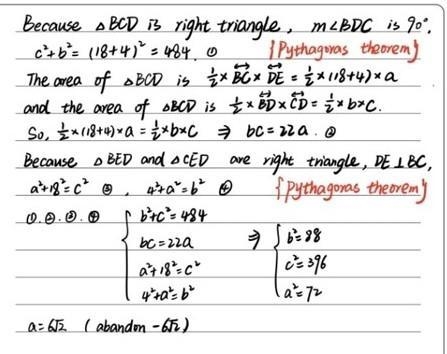 Because △BCD is right triangle, m∠BDC is 90°.
c²+b²= (18+4)² = 484. ① {Pythagoras theorem}
The area of △BCD is ½×B͡C×D͡E = ½×(18+4)×a
and the area of △BCD is ½×B͡D×C͡D= ½×b×c.
So, ½×(18+4)×a=½×b×c ⇒ bc=22a. ②
Because △BED and △CED are right triangle, DE⊥BC,
a²+18²=c² ③, 4²+a²=b² ④ {Pythagoras theorem}
①.②.③.④ { b²+c²=484
bc=22a ⇒ { b²=88
a²+18²=c² c²=396
4²+a²=b² a²=72
a=6√2 (abandon -6√2)